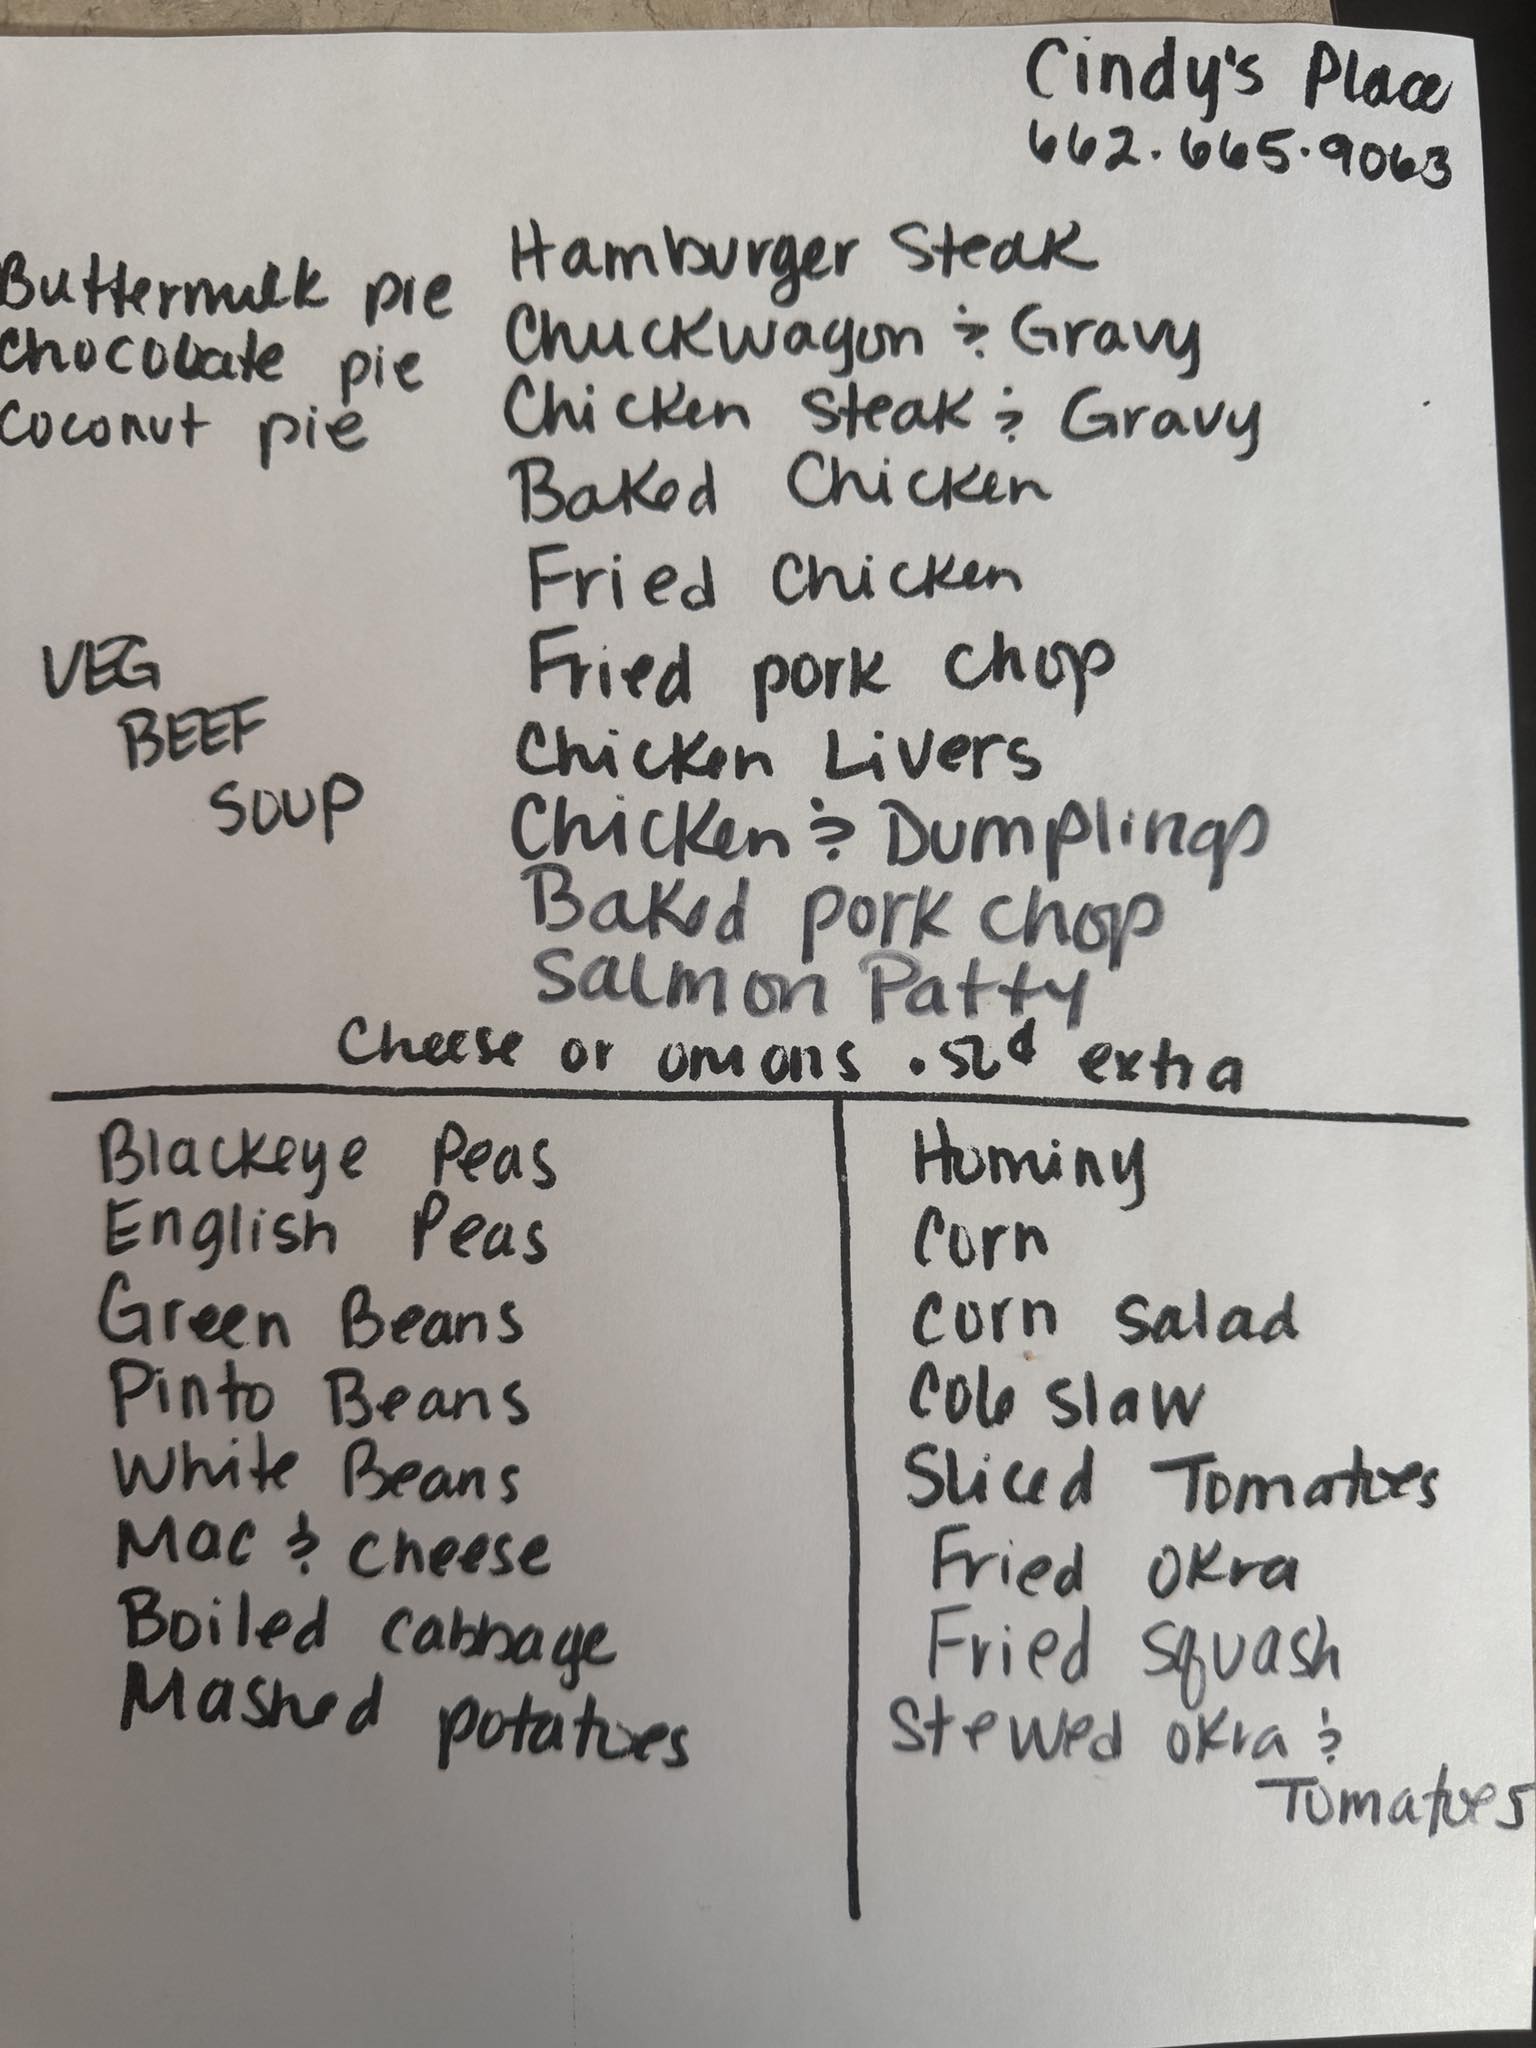 Cindy's Place
662.665.9063
Buttermilk pie
Chocolate pie
Coconut pie
VEG
BEEF
SOUP
Hamburger Steak
Chuckwagon & Gravy
Chicken Steak & Gravy
Baked Chicken
Fried Chicken
Fried pork chop
Chicken Livers
Chicken & Dumplings
Baked pork chop
Salmon Patty
Cheese or onions .50¢ extra
Blackeye Peas
English Peas
Green Beans
Pinto Beans
White Beans
Mac & cheese
Boiled cabbage
Mashed potatoes
Hominy
Corn
Corn salad
Cole slaw
Sliced Tomatoes
Fried okra
Fried squash
Stewed okra &
Tomatoes